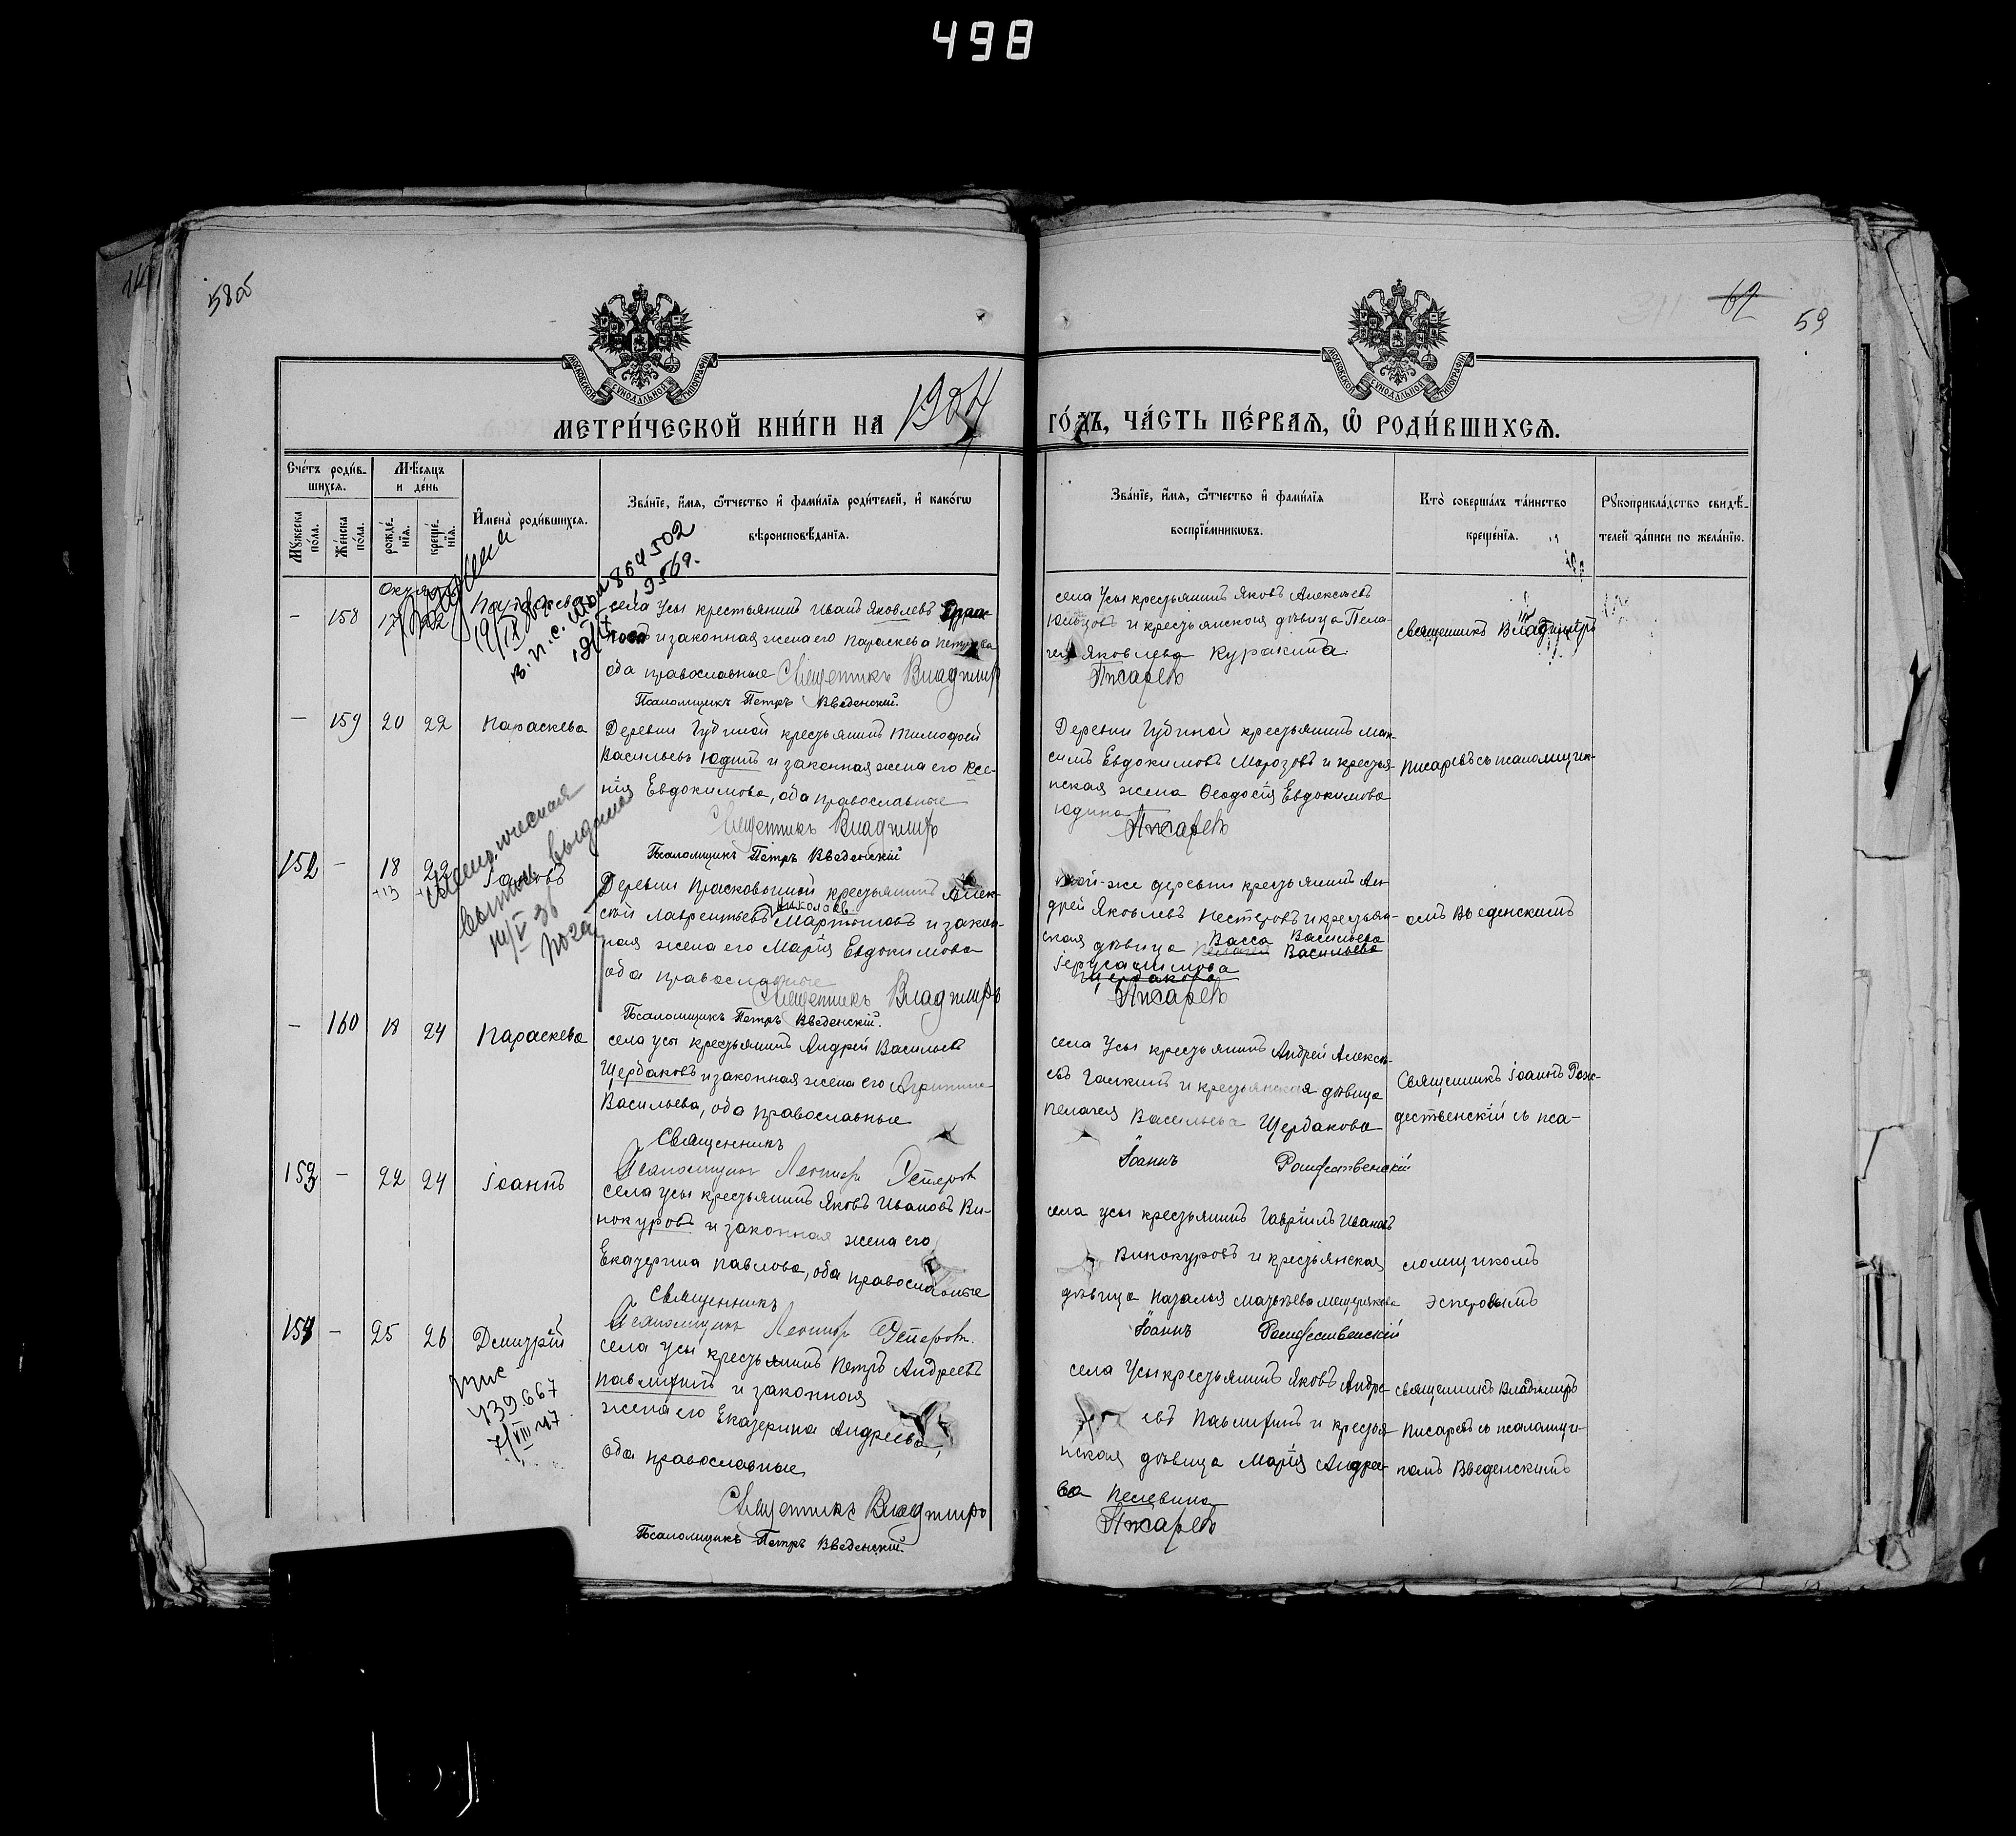 498
58об
62
59
МОСКОВСКОЙ СУНОДАЛЬНОЙ ТИПОГРАФІИ
МОСКОВСКОЙ СУНОДАЛЬНОЙ ТИПОГРАФІИ
МЕТРИ́ЧЕСКОЙ КНИ́ГИ НА 1904
ГО́ДЪ, ЧА́СТЬ ПЕ́РВАЯ, Ѽ РОДИ́ВШИХСѦ.
Сче́тъ роди́в-
шихсѧ.
Мѣ́сѧцъ
и де́нь
Мꙋ́жеска по́ла.
Же́нска по́ла.
рожде́-
нїѧ.
креще́-
нїѧ.
И҆мена̀ роди́вшихсѧ.
Зва́нїе, и҆́мѧ, ѻ҆́тчество и҆ фами́лїѧ роди́телей, и҆ како́гѡ
вѣроисповѣ́данїѧ.
Зва́нїе, и҆́мѧ, ѻ҆́тчество и҆ фами́лїѧ
воспрїе́мникѡвъ.
Кто̀ соверша́лъ та́инство
креще́нїѧ.
Рꙋкоприкла́дство свидѣ́-
телей за́писи по жела́нїю.
864502
1956г.
– 158
села Усы крестьянинъ Иванъ Яковлевъ
и законная жена его Параскева
оба православные Священникъ Владимiръ
Псаломщикъ Петръ Введенскій.
села Усы крестьянинъ Яковъ Алексѣевъ
и крестьянская дѣвица Пела-
гея Яковлева Куракина
Писаревъ
священникъ Владимiръ
– 159 20 22 Параскева
Деревни Губиной крестьянинъ Тимофей
Васильевъ Юдинъ и законная жена его Ксе-
нія Евдокимова, оба православные
Священникъ Владимiръ
Псаломщикъ Петръ Введенскій
Деревни Губиной крестьянинъ Мак-
симъ Евдокимовъ Морозовъ и крестья-
нская жена Ѳеодосія Евдокимова
Юдина
Писаревъ
Писаревъ съ псаломщик-
152 – 18 22 Іаковъ
+13
выпись выдана
14/V 36
Деревни Прасковьиной крестьянинъ Алек-
сѣй Лаврентьевъ Мартыновъ и закон-
ная жена его Марія Евдокимова
оба православные
Священникъ Владимiръ
Псаломщикъ Петръ Введенскій.
той-же деревни крестьянинъ Ан-
дрей Яковлевъ Нестеровъ и крестьян-
ская дѣвица Васса Васильева
Пелагея Васильева
Іерусалимова
Щербакова
Писаревъ
омъ Введенскимъ
– 160 18 24 Параскева
села Усы крестьянинъ Андрей Васильевъ
Щербаковъ и законная жена его Агрипина
Васильева, оба православные
Священникъ
Псаломщикъ
села Усы крестьянинъ Андрей Алексѣ-
евъ Галкинъ и крестьянская дѣвица
Пелагея Васильева Щербакова
Іоаннъ Рождественскій
Священникъ Іоаннъ Рож-
дественскій съ пса-
153 – 22 24 Іоаннъ
села Усы крестьянинъ Яковъ Ивановъ Ви-
нокуровъ и законная жена его
Екатерина Павлова, оба православные
Священникъ
Псаломщикъ
села Усы крестьянинъ Гавріилъ Ивановъ
Винокуровъ и крестьянская
дѣвица Наталья Матвѣева Мещерякова
Іоаннъ Рождественскій
ломщикомъ
Эсперовымъ
154 – 25 26 Димитрій
439.667
7/VIII 47
села Усы крестьянинъ Петръ Андреевъ
Павлихинъ и законная
жена его Екатерина Андреева,
оба православные
Священникъ Владимiръ
Псаломщикъ Петръ Введенскій.
села Усы крестьянинъ Яковъ Андре-
евъ Павлихинъ и крестья-
нская дѣвица Марія Андрее-
ва Пелевина
Писаревъ
священникъ Владимiръ
Писаревъ съ псаломщи-
комъ Введенскимъ